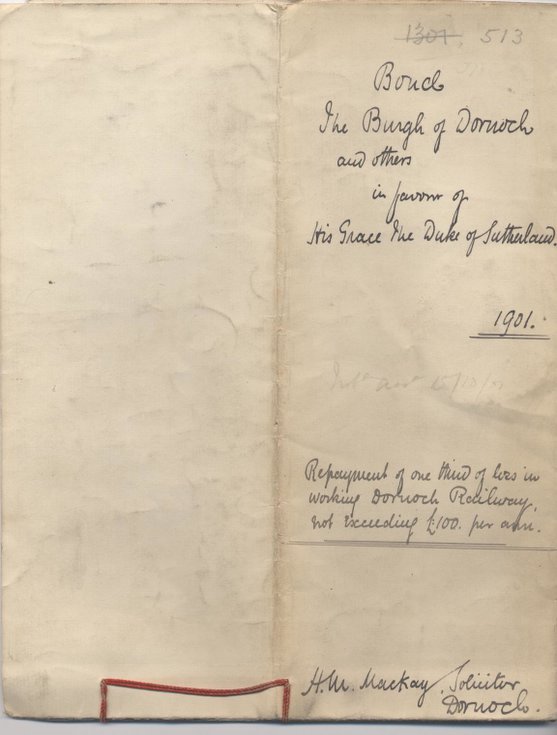 1301. 513
Bond
The Burgh of Dornoch
and others
in favour of
His Grace The Duke of Sutherland.
1901.
Repayment of one third of loss in
working Dornoch Railway,
not exceeding £100. per ann.
H.M. Mackay, Solicitor
Dornoch.